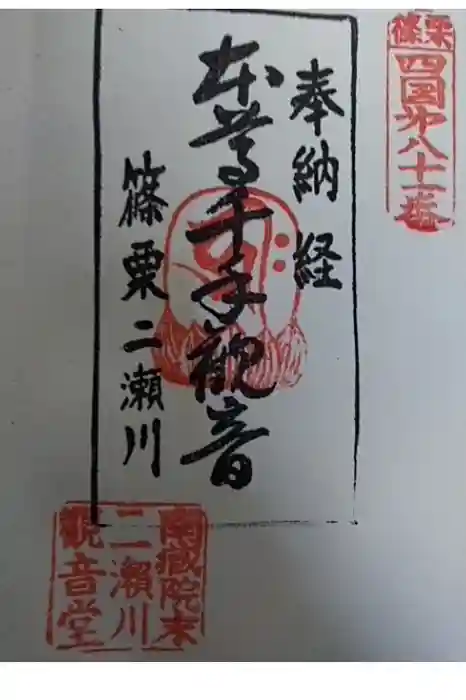 篠栗
四国第八十一番
奉納経
本尊千手観音
篠栗二瀬川
南蔵院末
二瀬川
観音堂